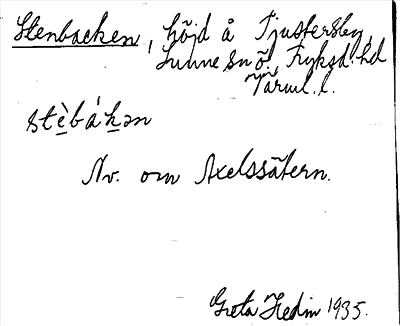 Stenbacken, höjd å Tjustersby,
Sunne sn ö., Fryksd. hd
Värml. l.
stè̱bák̲ən
Nv. om Axelssätern.
Greta Hedin 1935.